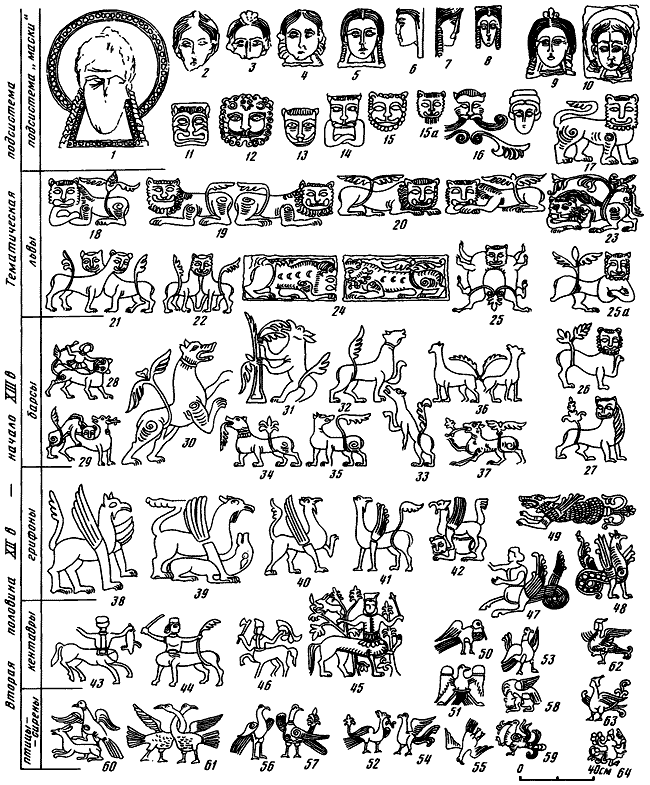 Вторая половина XII в — начала XIII в
Тематическая подсистема
подсистема „маски“
львы
барсы
грифоны
кентавры
птицы-
-сирены
1
2 3 4 5 6 7 8
9 10
11 12 13 14 15 15а 16
17
18 19 20
23
21 22 24 25 25а
28 30 31 32 36 26
29 34 35 33 37 27
38 39 40 41 42
49
47 48
43 44 46 45
50 53 62
51 58 63
60 61 56 57 52 54 55 59 64
0 40см